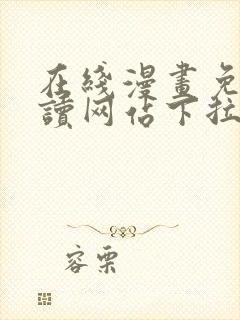 在綫漫畫免
讀网站下拉
容栗